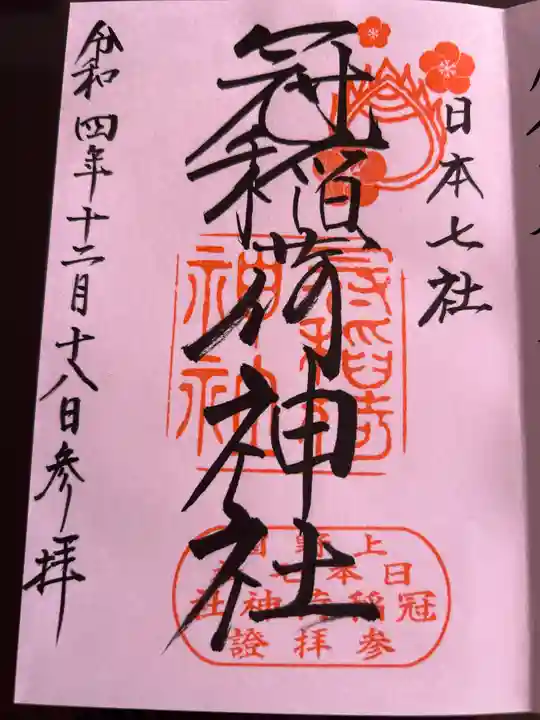 日本七社
冠稲荷神社
令和四年十二月十八日参拝
冠稲荷
神社
上野国
日本七社
冠稲荷神社
参拝證